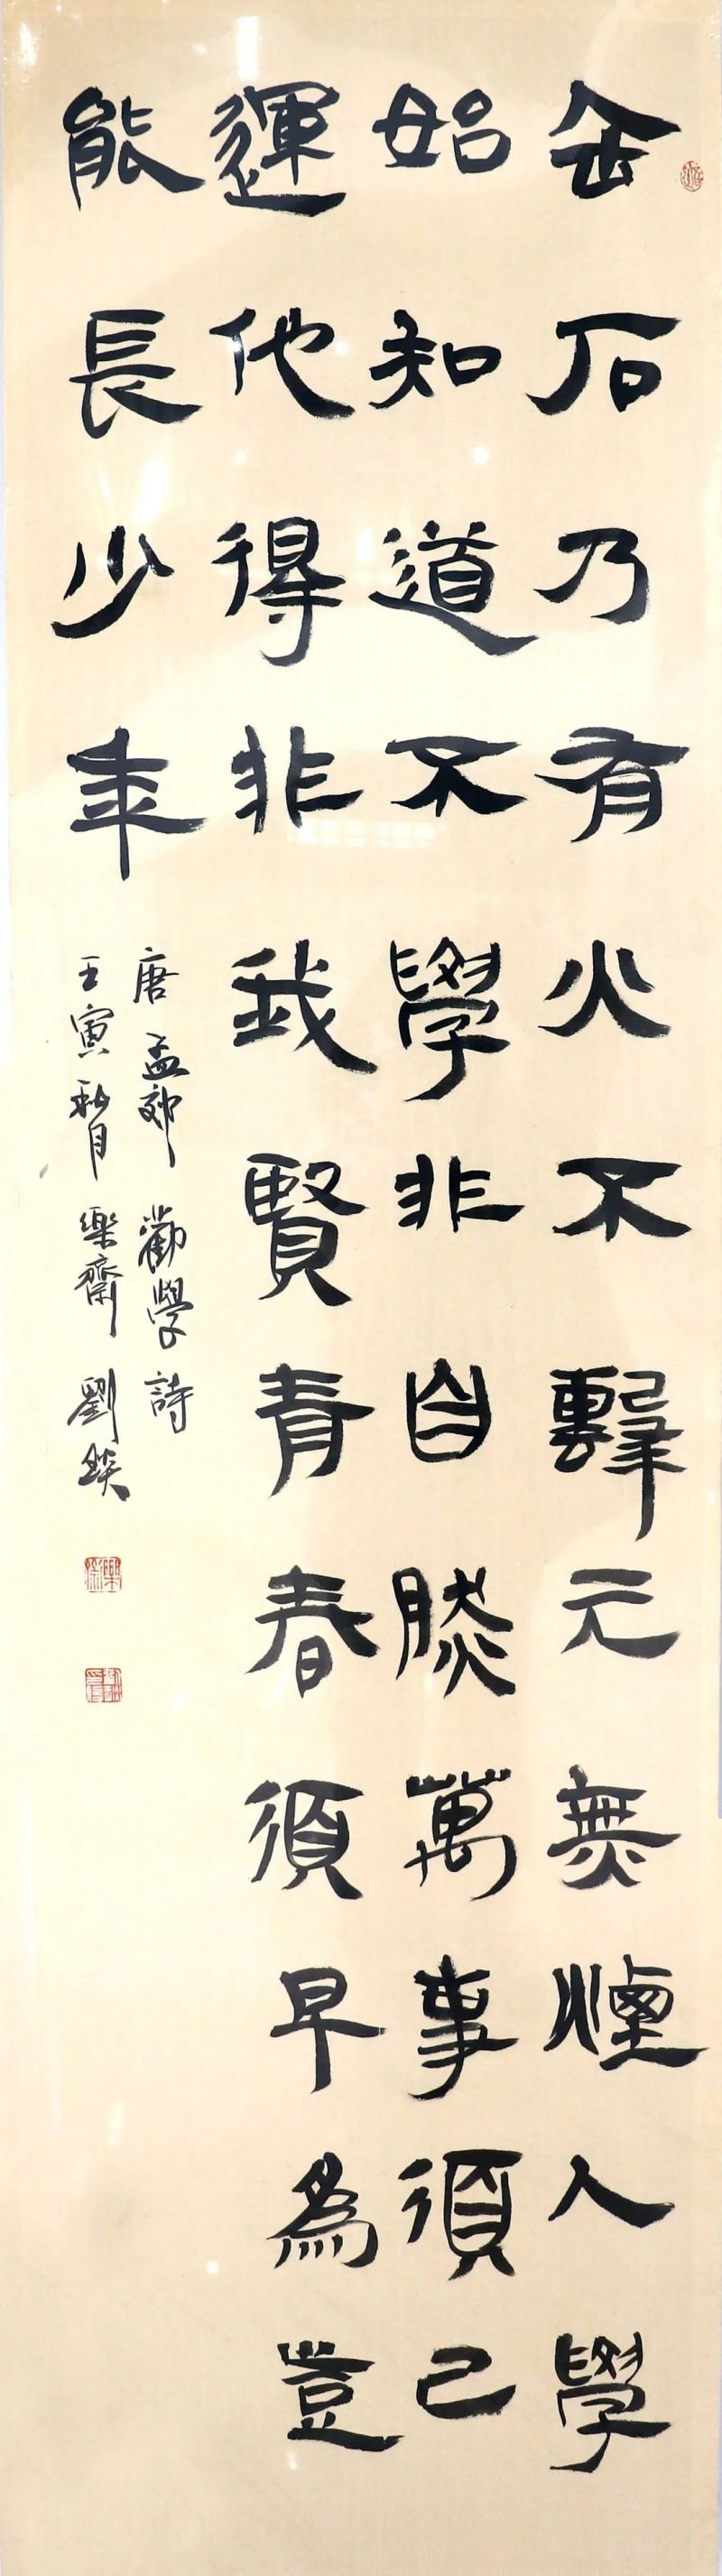 击石乃有火不擊元無煙人學
始知道不學非自然萬事須己
運他得非我賢青春須早為豈
能長少年
唐孟郊勸學詩
壬寅秋月樂齋劉錟